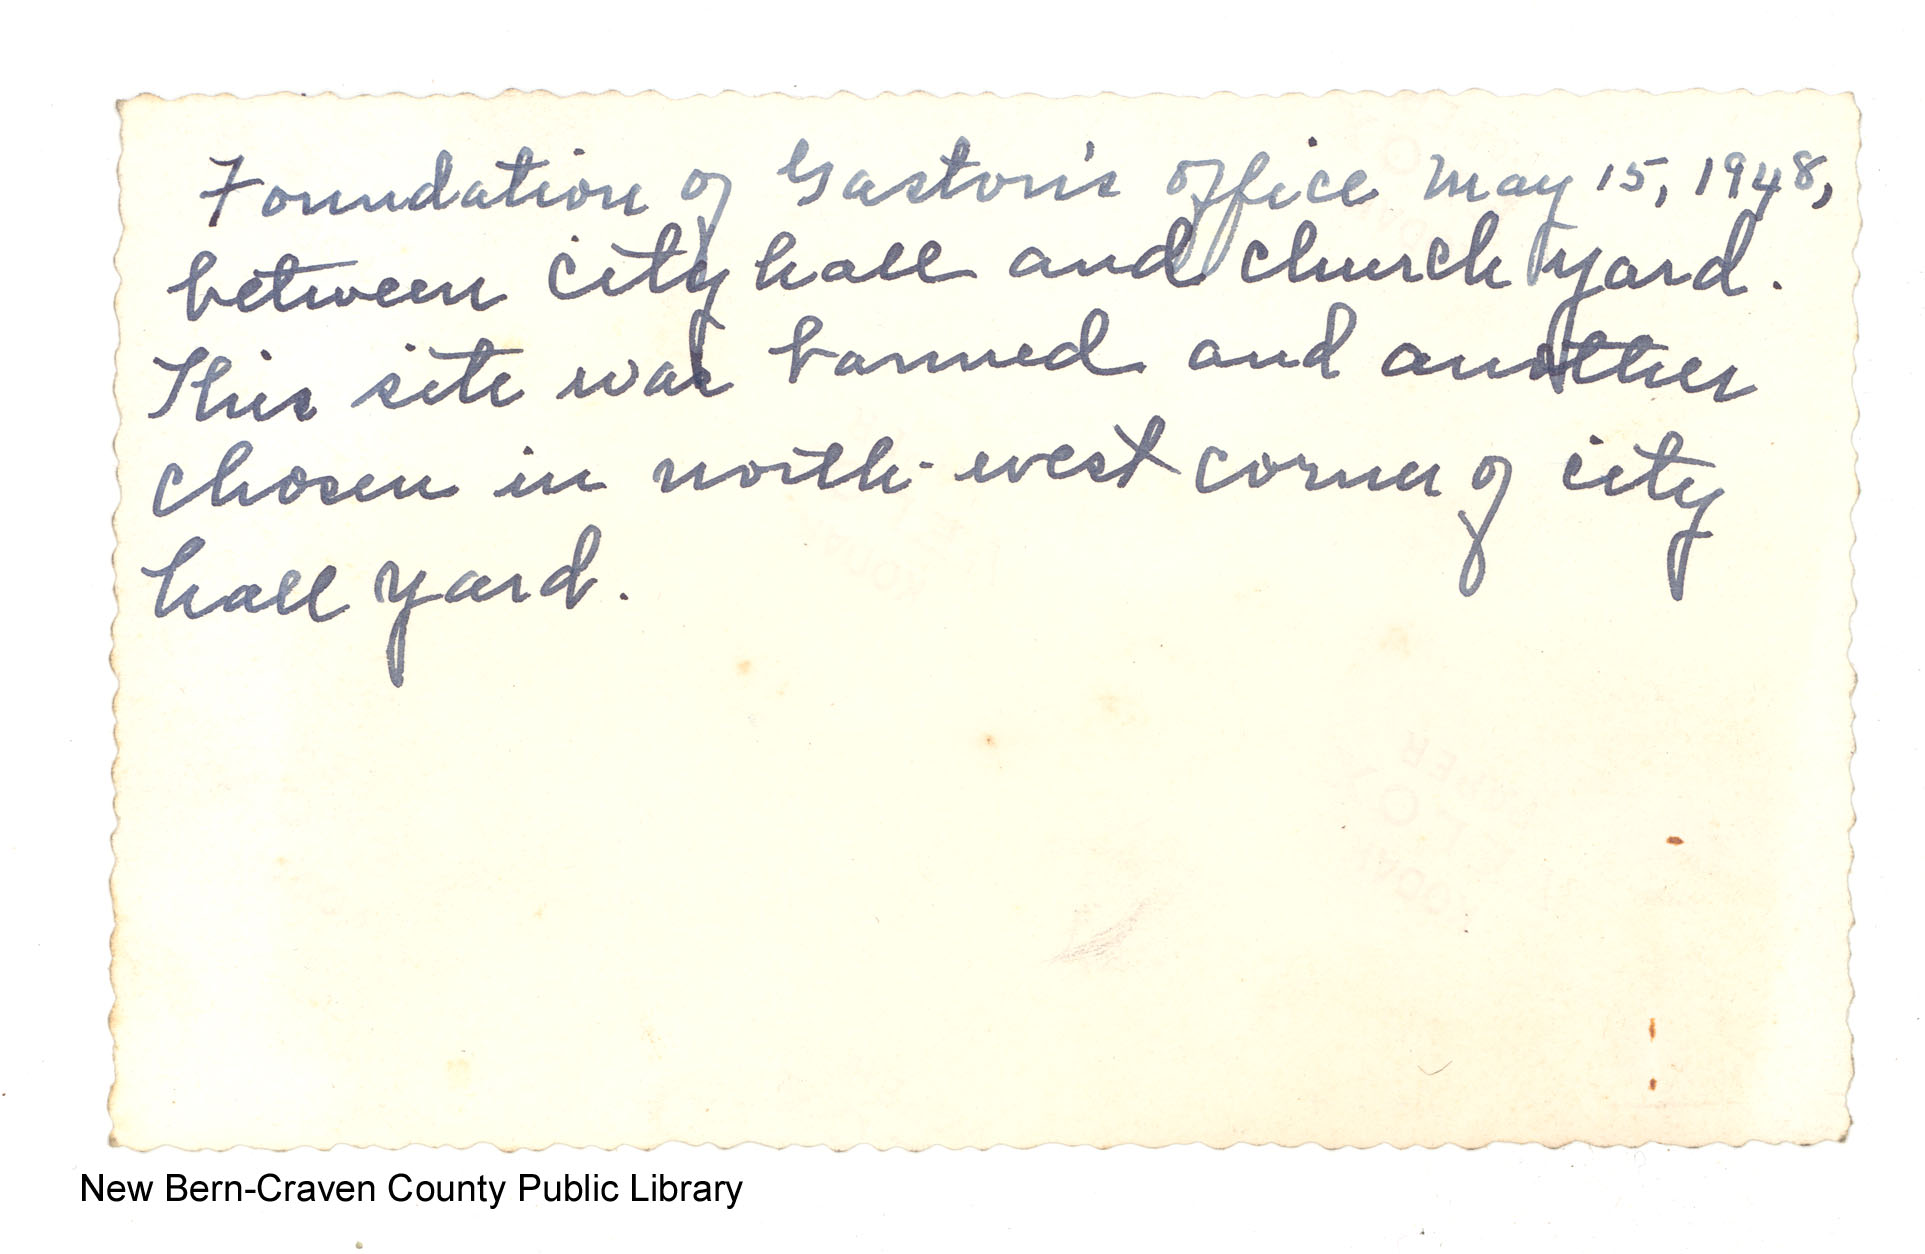 Foundation of Gaston's office May 15, 1948,
between city hall and church yard.
This site was banned and another
chosen in north-west corner of city
hall yard.
New Bern-Craven County Public Library